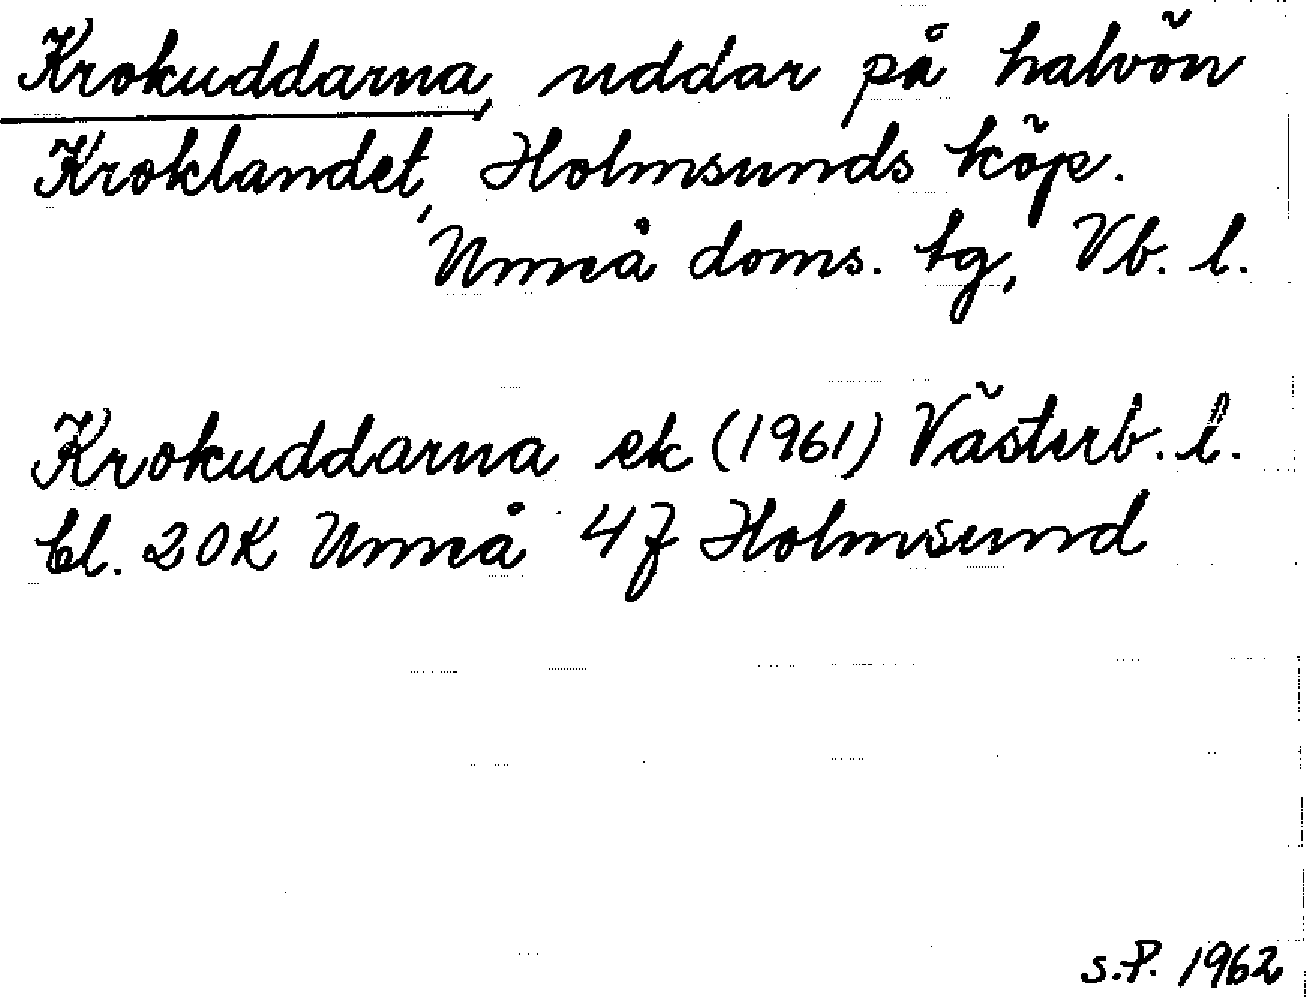 Krokuddarna, uddar på halvön
Kroklandet, Holmsunds köp.
Umeå doms. tg, Vb. l.
Krokuddarna ek (1961) Västerb. l.
bl. 20K Umeå 4f Holmsund
S.P. 1962